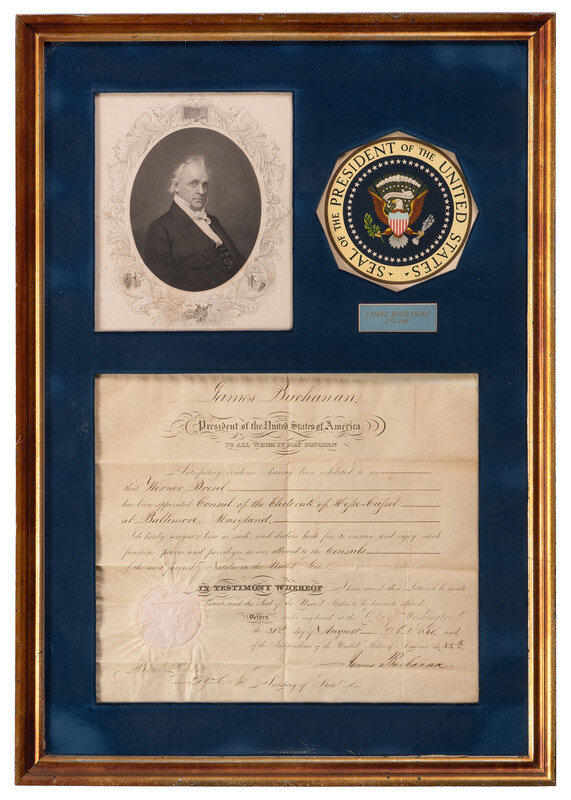 SEAL OF THE PRESIDENT OF THE UNITED STATES
JAMES BUCHANAN
James Buchanan,
President of the United States of America
TO ALL WHOM IT MAY CONCERN
Satisfactory evidence having been exhibited to me
that Werner Dresel
has been appointed Consul of the Electorate of Hesse-Cassel
at Baltimore, Maryland,
I do hereby recognize him as such, and declare him free to exercise and enjoy such
functions, powers and privileges as are allowed to the Consuls
of the most favored Nations in the United States.
IN TESTIMONY WHEREOF I have caused these Letters to be made
Patent, and the Seal of the United States to be hereunto affixed.
Given under my hand at the City of Washington
the 31st day of August A.D. 1860, and
of the Independence of the United States of America the 85th.
James Buchanan
Secretary of State